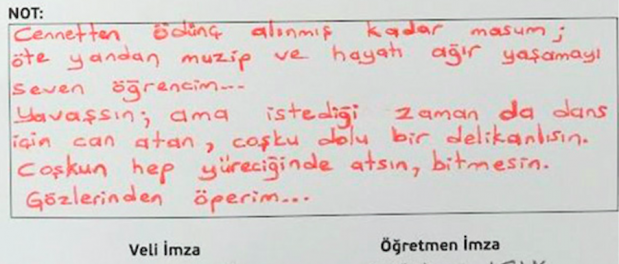 NOT:
Cennetten ödünç alınmış kadar masum;
öte yandan muzip ve hayatı ağır yaşamayı
seven öğrencim...
Yavaşsın; ama istediği zaman da dans
için can atan, coşku dolu bir delikanlısın.
Coşkun hep yüreciğinde atsın, bitmesin.
Gözlerinden öperim...
Veli İmza Öğretmen İmza